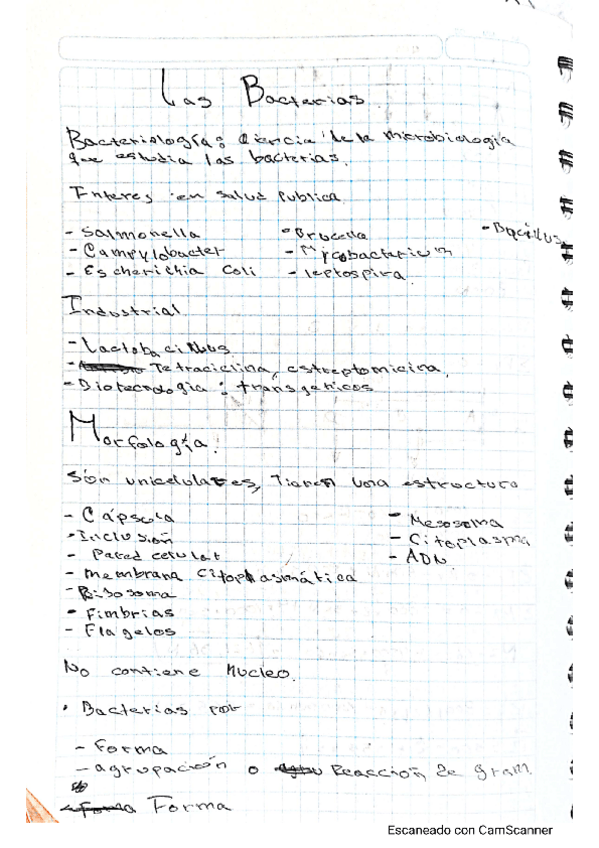 Las Bacterias
Bacteriología: Ciencia de la microbiología
que estudia las bacterias.
Interes en salud Publica
- Salmonella - Brucella - Bacillus
- Campylobacter - Mycobacterium
- Escherichia Coli - leptospira.
Industrial
- Lactobacillus
- Tetraciclina, estreptomicina,
- Biotecnologia: transgenicos
Morfología.
Són unicelulares, Tienen una estructura
- Cápsula - Mesosoma
- Inclusión - Citoplasma
- Pared celular - ADN.
- membrana Citoplasmática
- Ribosoma
- Fimbrias
- Flagelos
No contiene Nucleo.
· Bacterias por
- Forma
- agrupación o Reacción de gram.
Forma
Escaneado con CamScanner